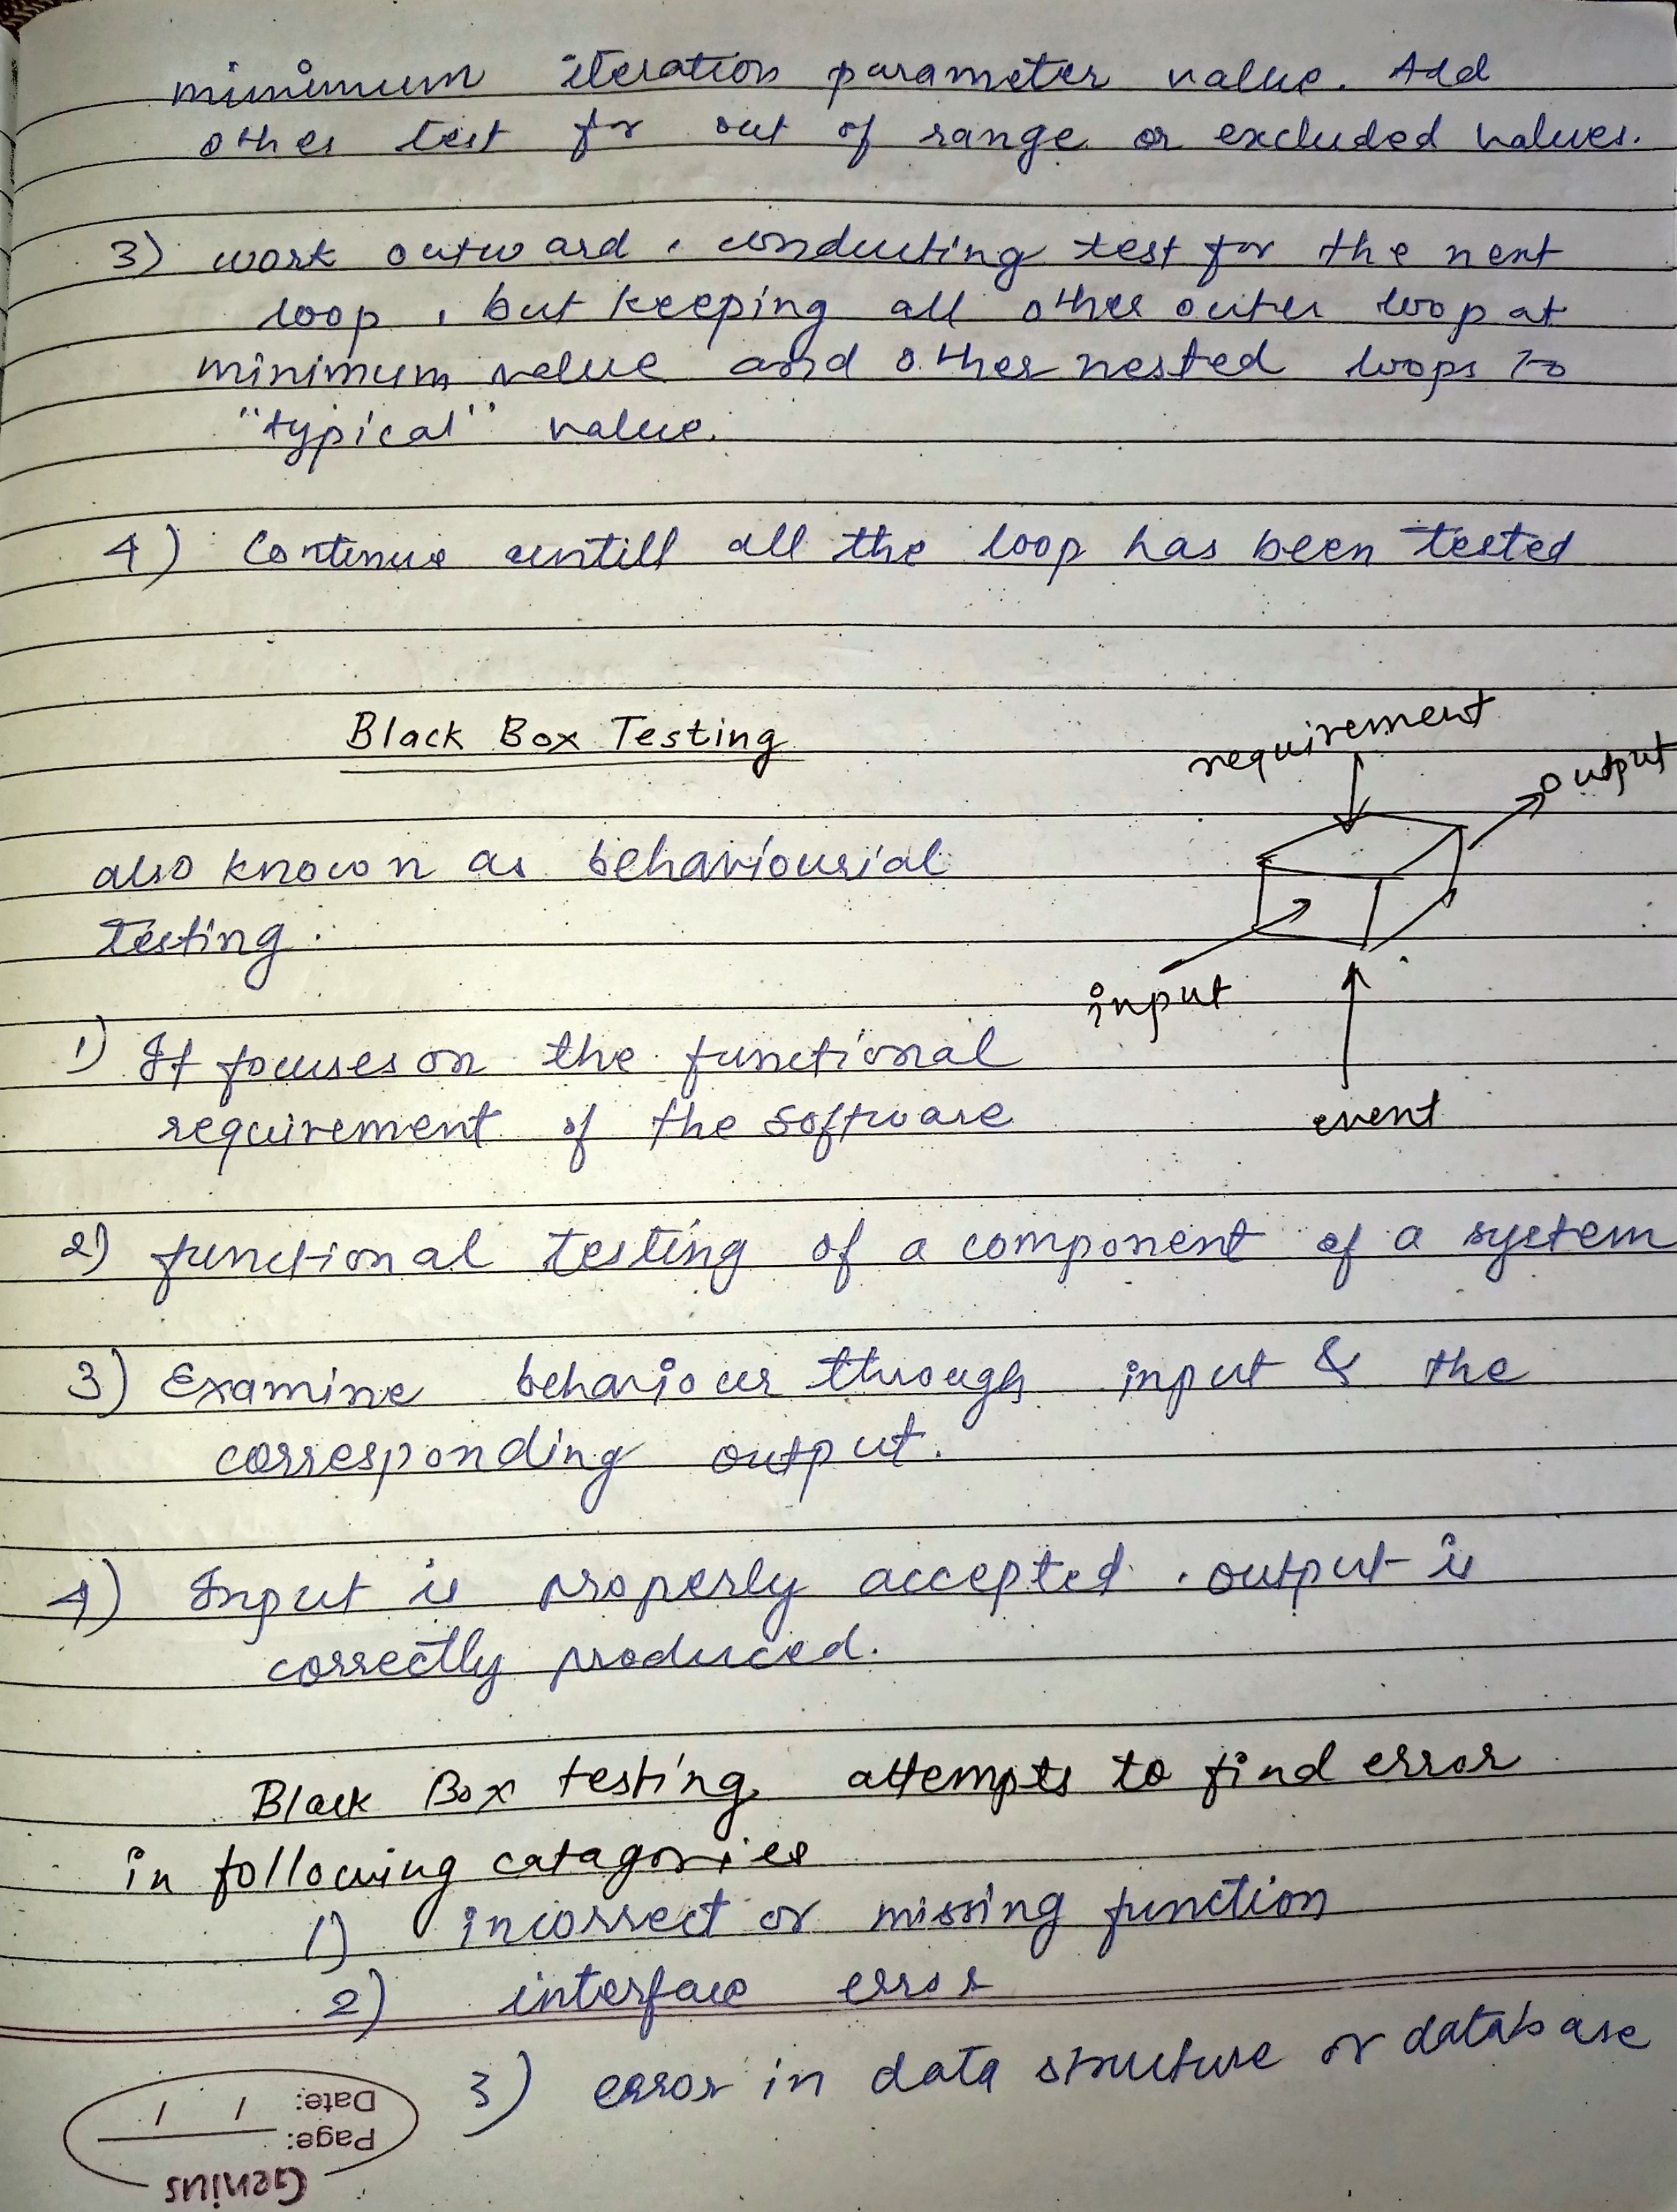 minimum iteration parameter value. Add
other test for out of range or excluded values.
3) work outward, conducting test for the next
loop, but keeping all other outer loop at
minimum value and other nested loops to
"typical" value.
4) Continue untill all the loop has been tested
Black Box Testing
requirement
output
also known as behaviourial
testing.
input
1) It focuses on the functional
requirement of the software
event
2) functional testing of a component of a system
3) Examine behaviour through input & the
corresponding output.
4) Input is properly accepted. output is
correctly produced.
Black Box testing attempts to find error
in following catagories
1) incorrect or missing function
2) interface error
3) error in data structure or database
Date: / /
Page:
Genius